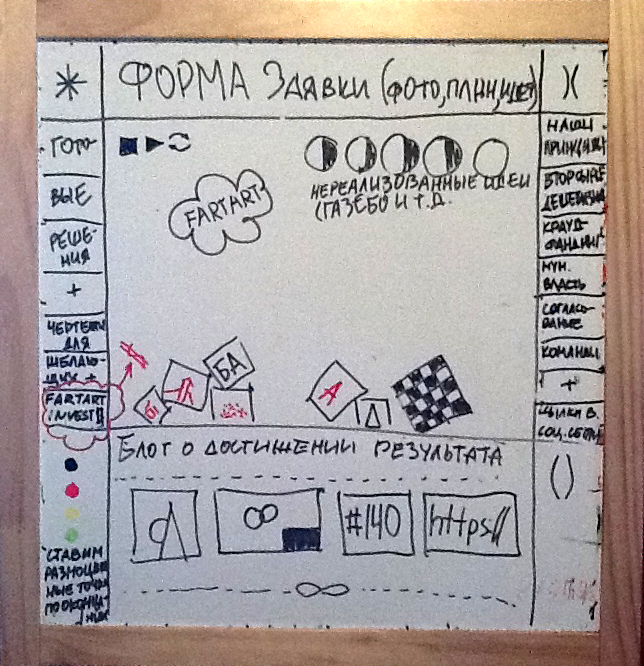 * ФОРМА Заявки (фото, план, идея) )(
ГОТО-
ВЫЕ
РЕШЕ-
НИЯ
+
ЧЕРТЕЖИ
ДЛЯ
ЖЕЛАЮ-
ЩИХ +
FARTART
INVEST
СТАВИМ
РАЗНОЦВЕТ
НЫЕ ТОЧКИ
ПО ОКОНЧА-
НИИ
FARTART
НЕРЕАЛИЗОВАННЫЕ ИДЕИ
(ГАЗЕБО И Т.Д.
БА
А
Д
БЛОГ О ДОСТИЖЕНИИ РЕЗУЛЬТАТА
∞
#140
https//
∞
НАШИ
ВТОРЫЕ
КРАУД-
ФАНДИНГ
МУН.
ВЛАСТЬ
СОГЛАСО-
ВАНИЕ
КОМАНДЫ
+
СОЦ. СЕТИ
()